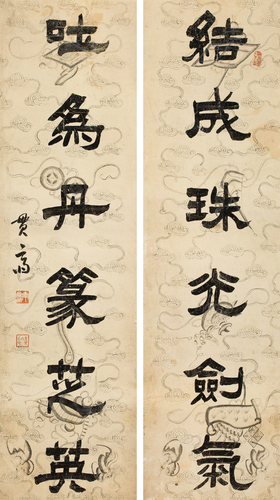 結成珠光劍氣
吐為丹篆芝英
貫斋